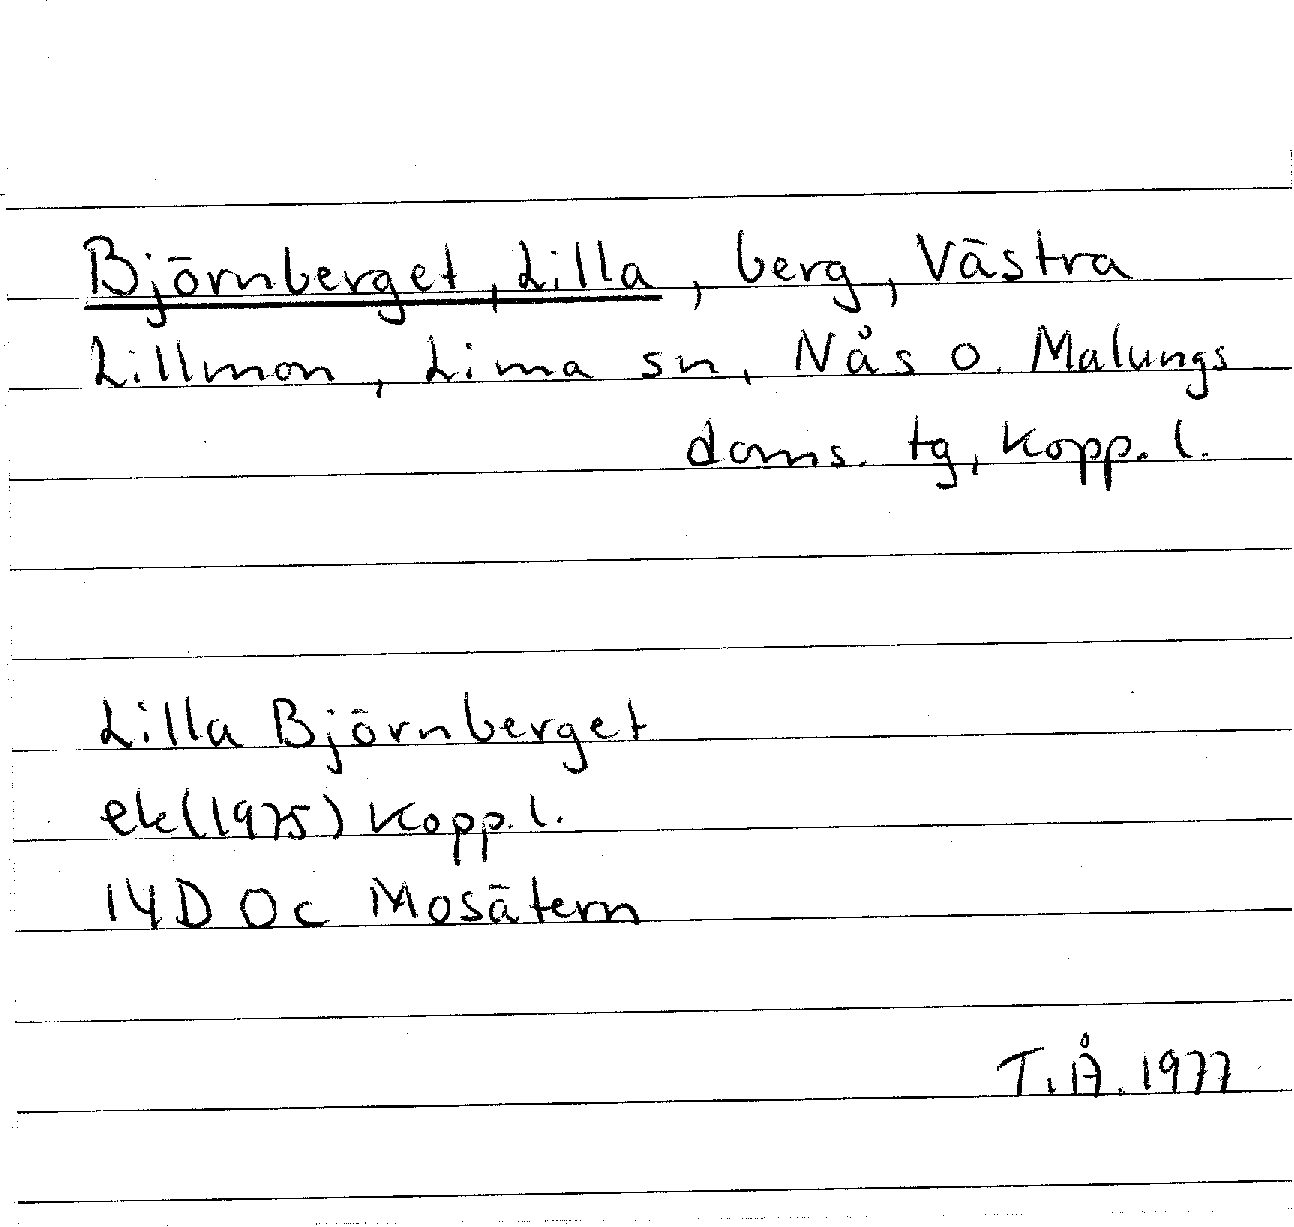 Björnberget, Lilla, berg, Västra
Lillmon, Lima sn, Nås o. Malungs
doms. tg, Kopp. l.
Lilla Björnberget
ek(1975) Kopp. l.
14D 0c Mosätern
T.Å. 1977